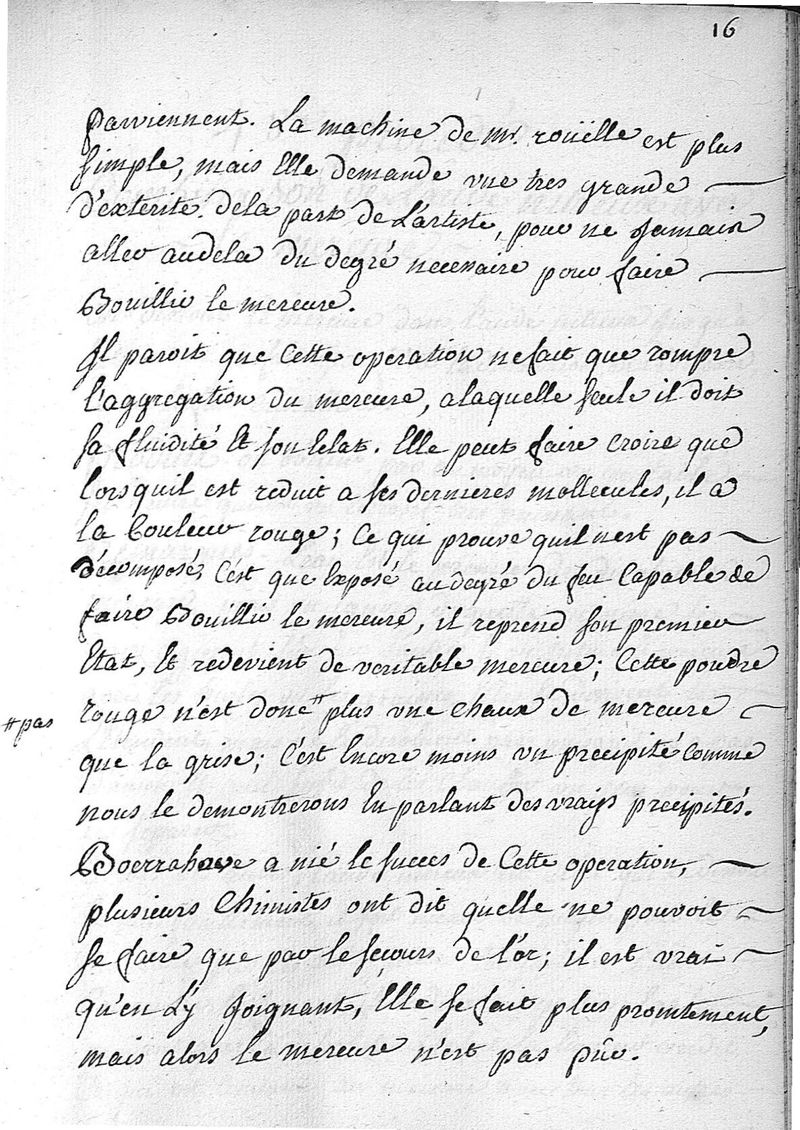 16
parviennent. La machine de mr. roüelle est plus
simple, mais Elle demande une tres grande
d'exterité dela part de L'artiste, pour ne Jamais
aller audela du degré necessaire pour faire
Bouillir le mercure.
Il paroit que Cette operation ne fait que rompre
l'aggregation du mercure, alaquelle seule il doit
sa fluidité Et son Eclat. Elle peut faire croire que
lorsquil est reduit a ses dernieres mollecules, il a
la Couleur rouge; Ce qui prouve quil n'est pas
décomposé, C'est que Exposé au degré du feu Capable de
faire Bouillir le mercure, il reprend son premier
Etat, Et redevient de veritable mercure; Cette poudre
rouge n'est donc # plus une Chaux de mercure
# pas
que la grise; C'est Encore moins un precipité Comme
nous le demontrerons En parlant des vrays precipités.
Boerrahave a nié le succes de Cette operation,
plusieurs Chimistes ont dit quelle ne pouvoit
se faire que par le secours de l'or; il est vrai
qu'en L'y Joignant, Elle se fait plus promtement,
mais alors le mercure n'est pas pûr.